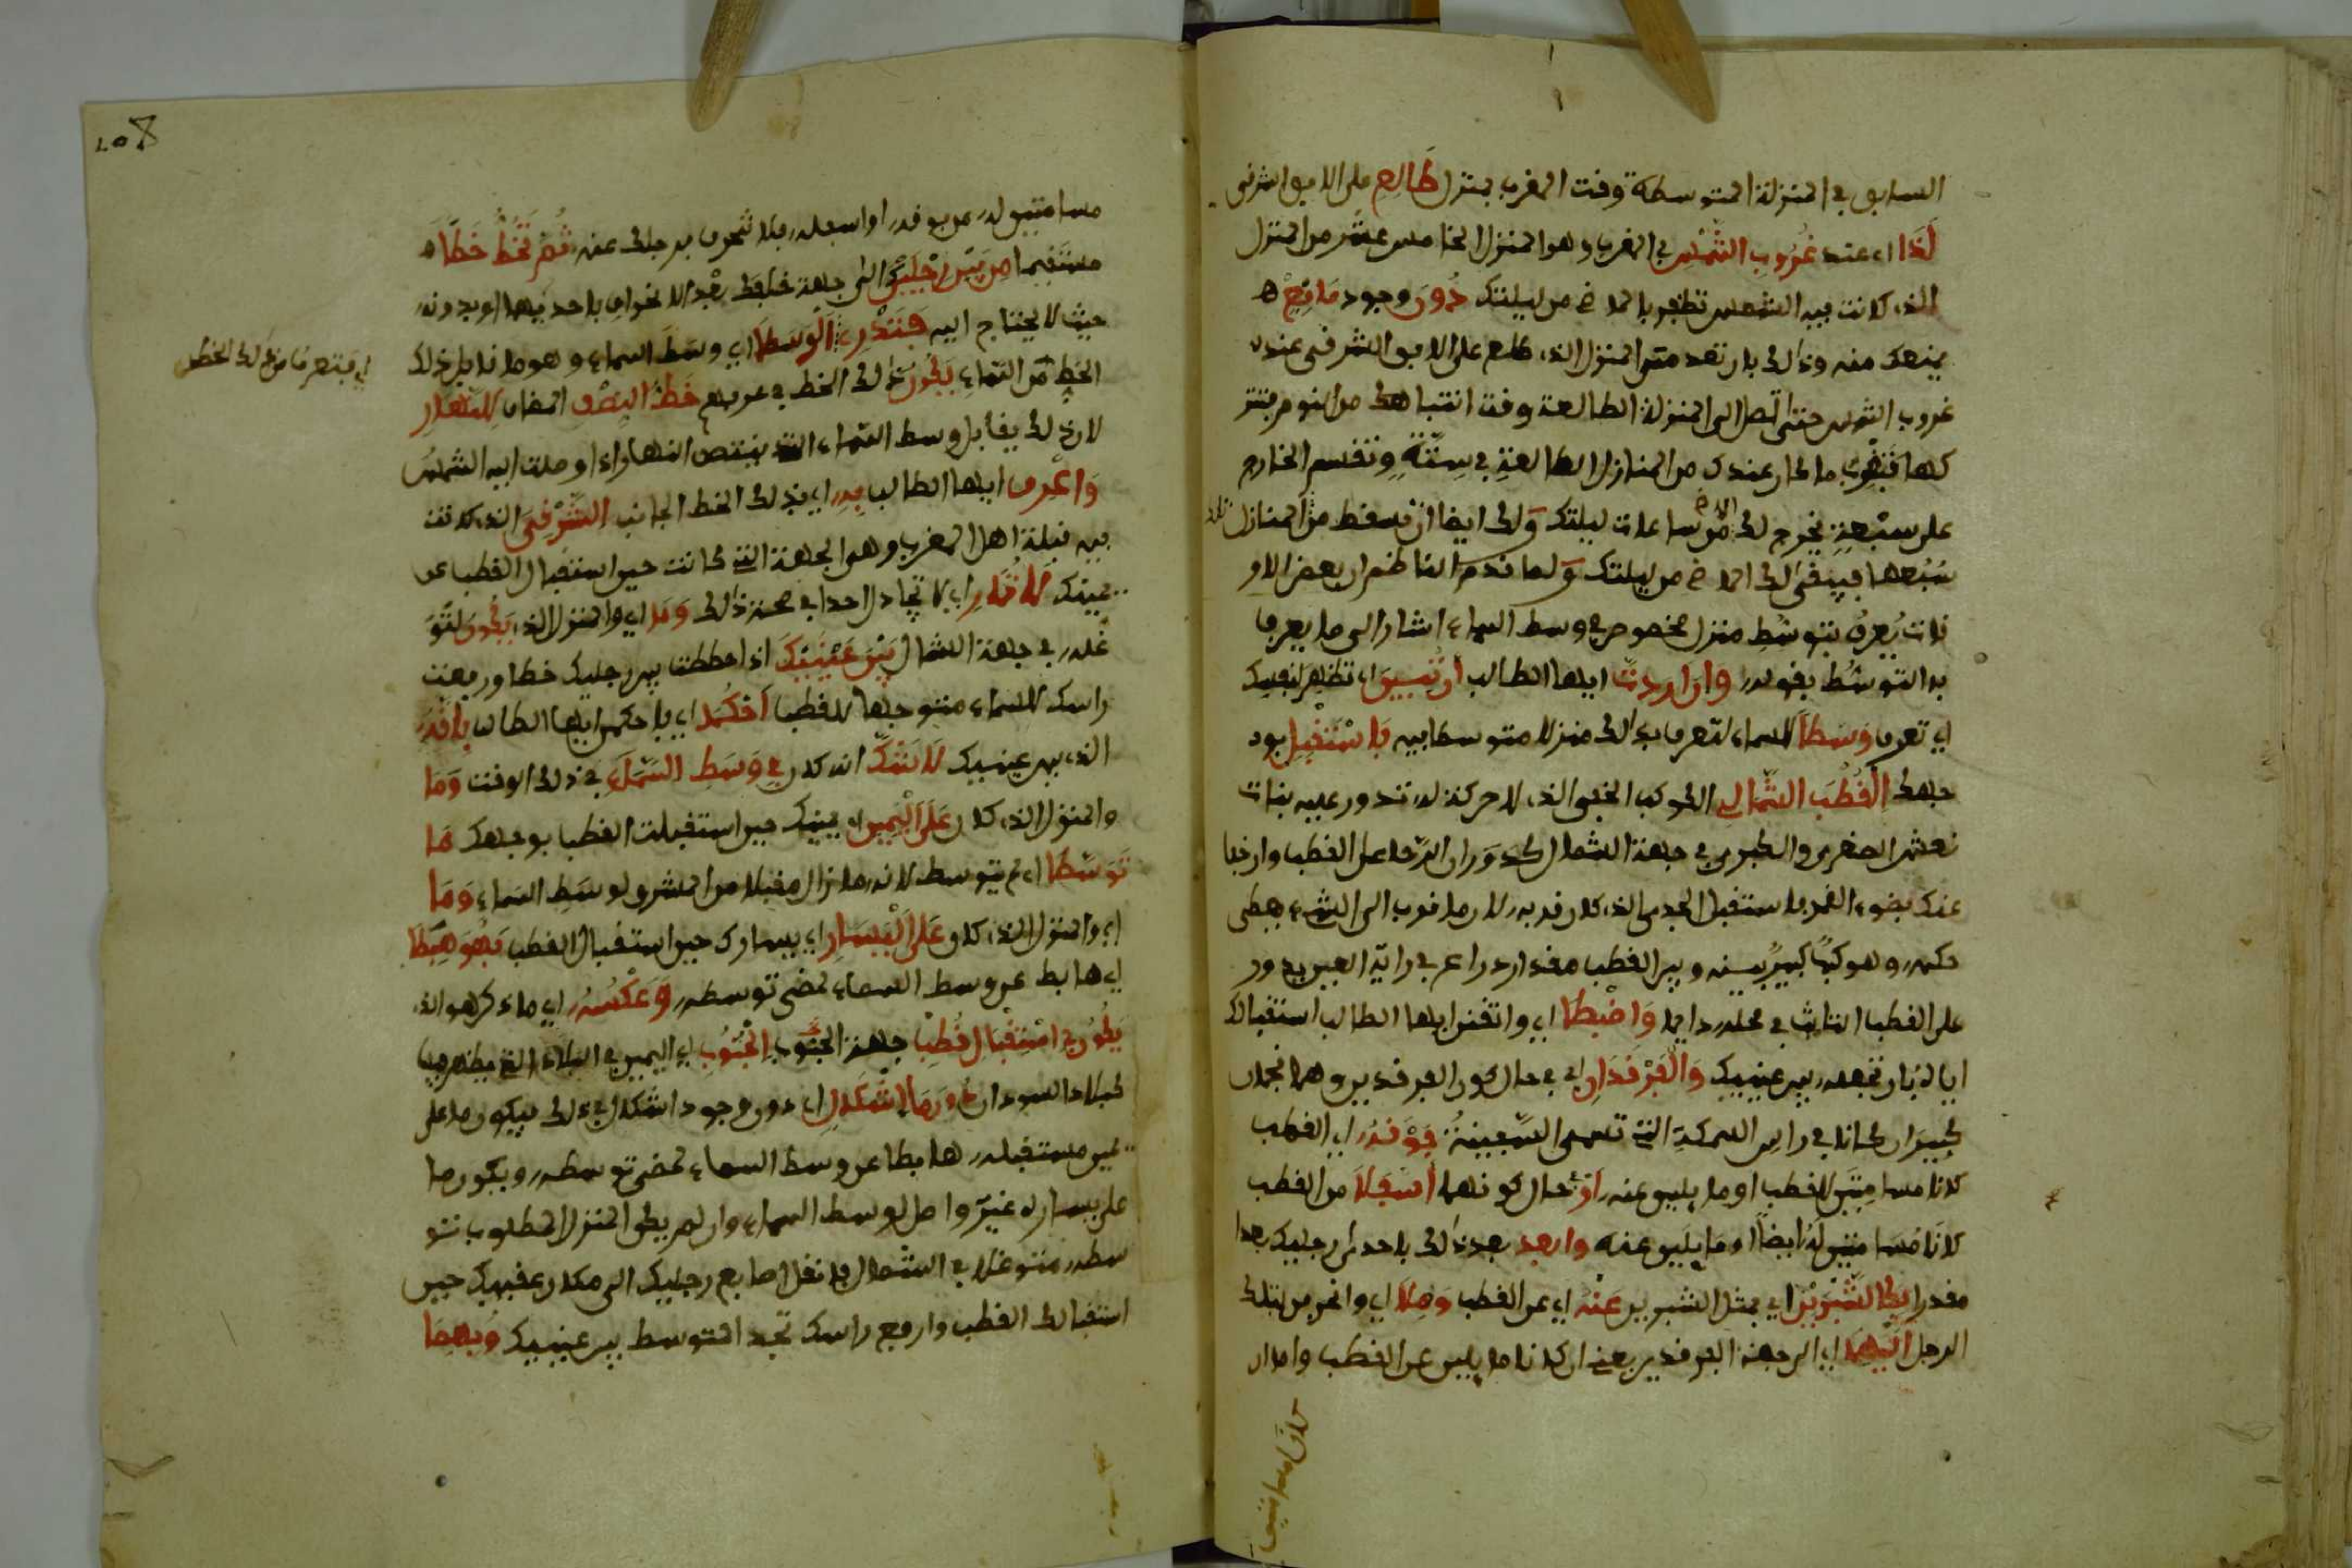 السابق في المنزلة المتوسطة وقت المغرب بمنزل طالع على الافق الشرقي
لذا اي عند غروب الشمس في المغرب وهو المنزل الخامس عشر من المنزل
الذي كانت فيه الشمس تظفر بالماضي من ليلتك دون وجود مانع
يمنعك منه وذلك بان تعد من المنزل الذي طلع على الافق الشرقي عند
غروب الشمس حتى تصل الى المنزلة الطالعة وقت انتباهك من النوم
كها فتضرب ما كان عندك من المنازل الطالعة في ستة وتقسم الخارج
على سبعة يخرج لك الماضي من ساعات ليلتك ولك ايضا ان تسقط من المنازل
سبعها فيبقى لك الماضي من ليلتك ولما قدم الناظم ان بعض الاو
قات يعرف بتوسط منزل مخصوص في وسط السماء اشار الى ما يعرف
به التوسط بقوله وان اردت ايها الطالب ان تبين اي تظهر لنفسك
اي تعرف وسطا للسماء لتعرف بذلك منزلا متوسطا فيه فاستقبل بو
جهك القطب الشمالي الكوكب الخفي الذي لا حركة له تدور عليه بنات
نعش الصغرى والكبرى في جهة الشمال كدوران الرحا على القطب وان خفا
عنك بضوء القمر فاستقبل الجدي الذي كان قربه لان ما قرب الى الشيء يعطى
حكمه وهو كبير بينه وبين القطب مقدار ذراع في راية العين يدور
على القطب الثابت في محله دايما واضبطا اي واتقن ايها الطالب استقبالك
اياه بان تجعله بين عينيك والفرقدان اي في حال كون الفرقدين وهما نجمان
كبيران كانا في راس السمكة التي تسمى السفينة فوقه اي القطب
كانا مسامتين للقطب او مايلين عنه او في حال كونهما اسفلا من القطب
كانا مسامتين له ايضا او مايلين عنه وابعد بعد ذلك باحدى رجليك بعدا
مقدار كالشبرين اي بمثل الشبرين عنه اي عن القطب وملا اي وانحرف بتلك
الرجل اليهما اي الى جهة الفرقدين يعني ان كانا مايلين عن القطب واما ان
كانا مسامتين
مسامتين له من فوقه او اسفله فلا تنحرف برجلك عنه ثم تخط خطا
مستقيما من بين رجليك الى جهة خلفك بعد الانحراف باحديهما او بدونه
حيث لا يحتاج اليه فتدري الوسطا اي وسط السماء وهو ما قابل ذلك
اي فتعرف من ذلك الخط
الخط من السماء يكون ذلك الخط في عرفهم خط النصف المضاف للنهار
لان ذلك يقابل وسط السماء الذي ينتصف النهار اذا وصلت اليه الشمس
واعرف ايها الطالب به اي بذلك الخط الجانب الشرقي الذي كانت
فيه قبلة اهل المغرب وهو الجهة التي كانت حين استقبال القطب عن
يمينك فلا تمار اي لا تجادل احدا في صحة ذلك وما اي والمنزل الذي يكون لتو
غله في جهة الشمال بين عينيك اذا خططت بين رجليك خطا ورفعت
راسك للسماء متوجها للقطب احكما اي فاحكمن ايها الطالب بانه
الذي بين عينيك لا شك انه كان في وسط السماء في ذلك الوقت وما
والمنزل الذي كان على اليمين اي يمينك حين استقبلت القطب بوجهك ما
توسطا اي لم يتوسط لانه ما زال مقبلا من المشرق لوسط السماء وما
اي والمنزل الذي كان على اليسار اي يسارك حين استقبال القطب فهو هبطا
اي هابط عن وسط السماء لمضي توسطه وعكسه اي ما ذكر هو الذي
يكون في استقبال قطب جهة الجنوب الجنوب اي اليمين في البلاد التي يظهر فيها
كبلاد السودان دون ما اشكال اي دون وجود اشكال في ذلك فيكون ما على
يمين مستقبله هابطا عن وسط السماء لمضي توسطه ويكون ما
على يساره غير واصل لوسط السماء وان لم يكن المنزل المطلوب تو
سطه متوغلا في الشمال فانقل اصابع رجليك الى مكان عقبيك حين
استقبالك القطب وارفع راسك تجد المتوسط بين عينيك وبهما